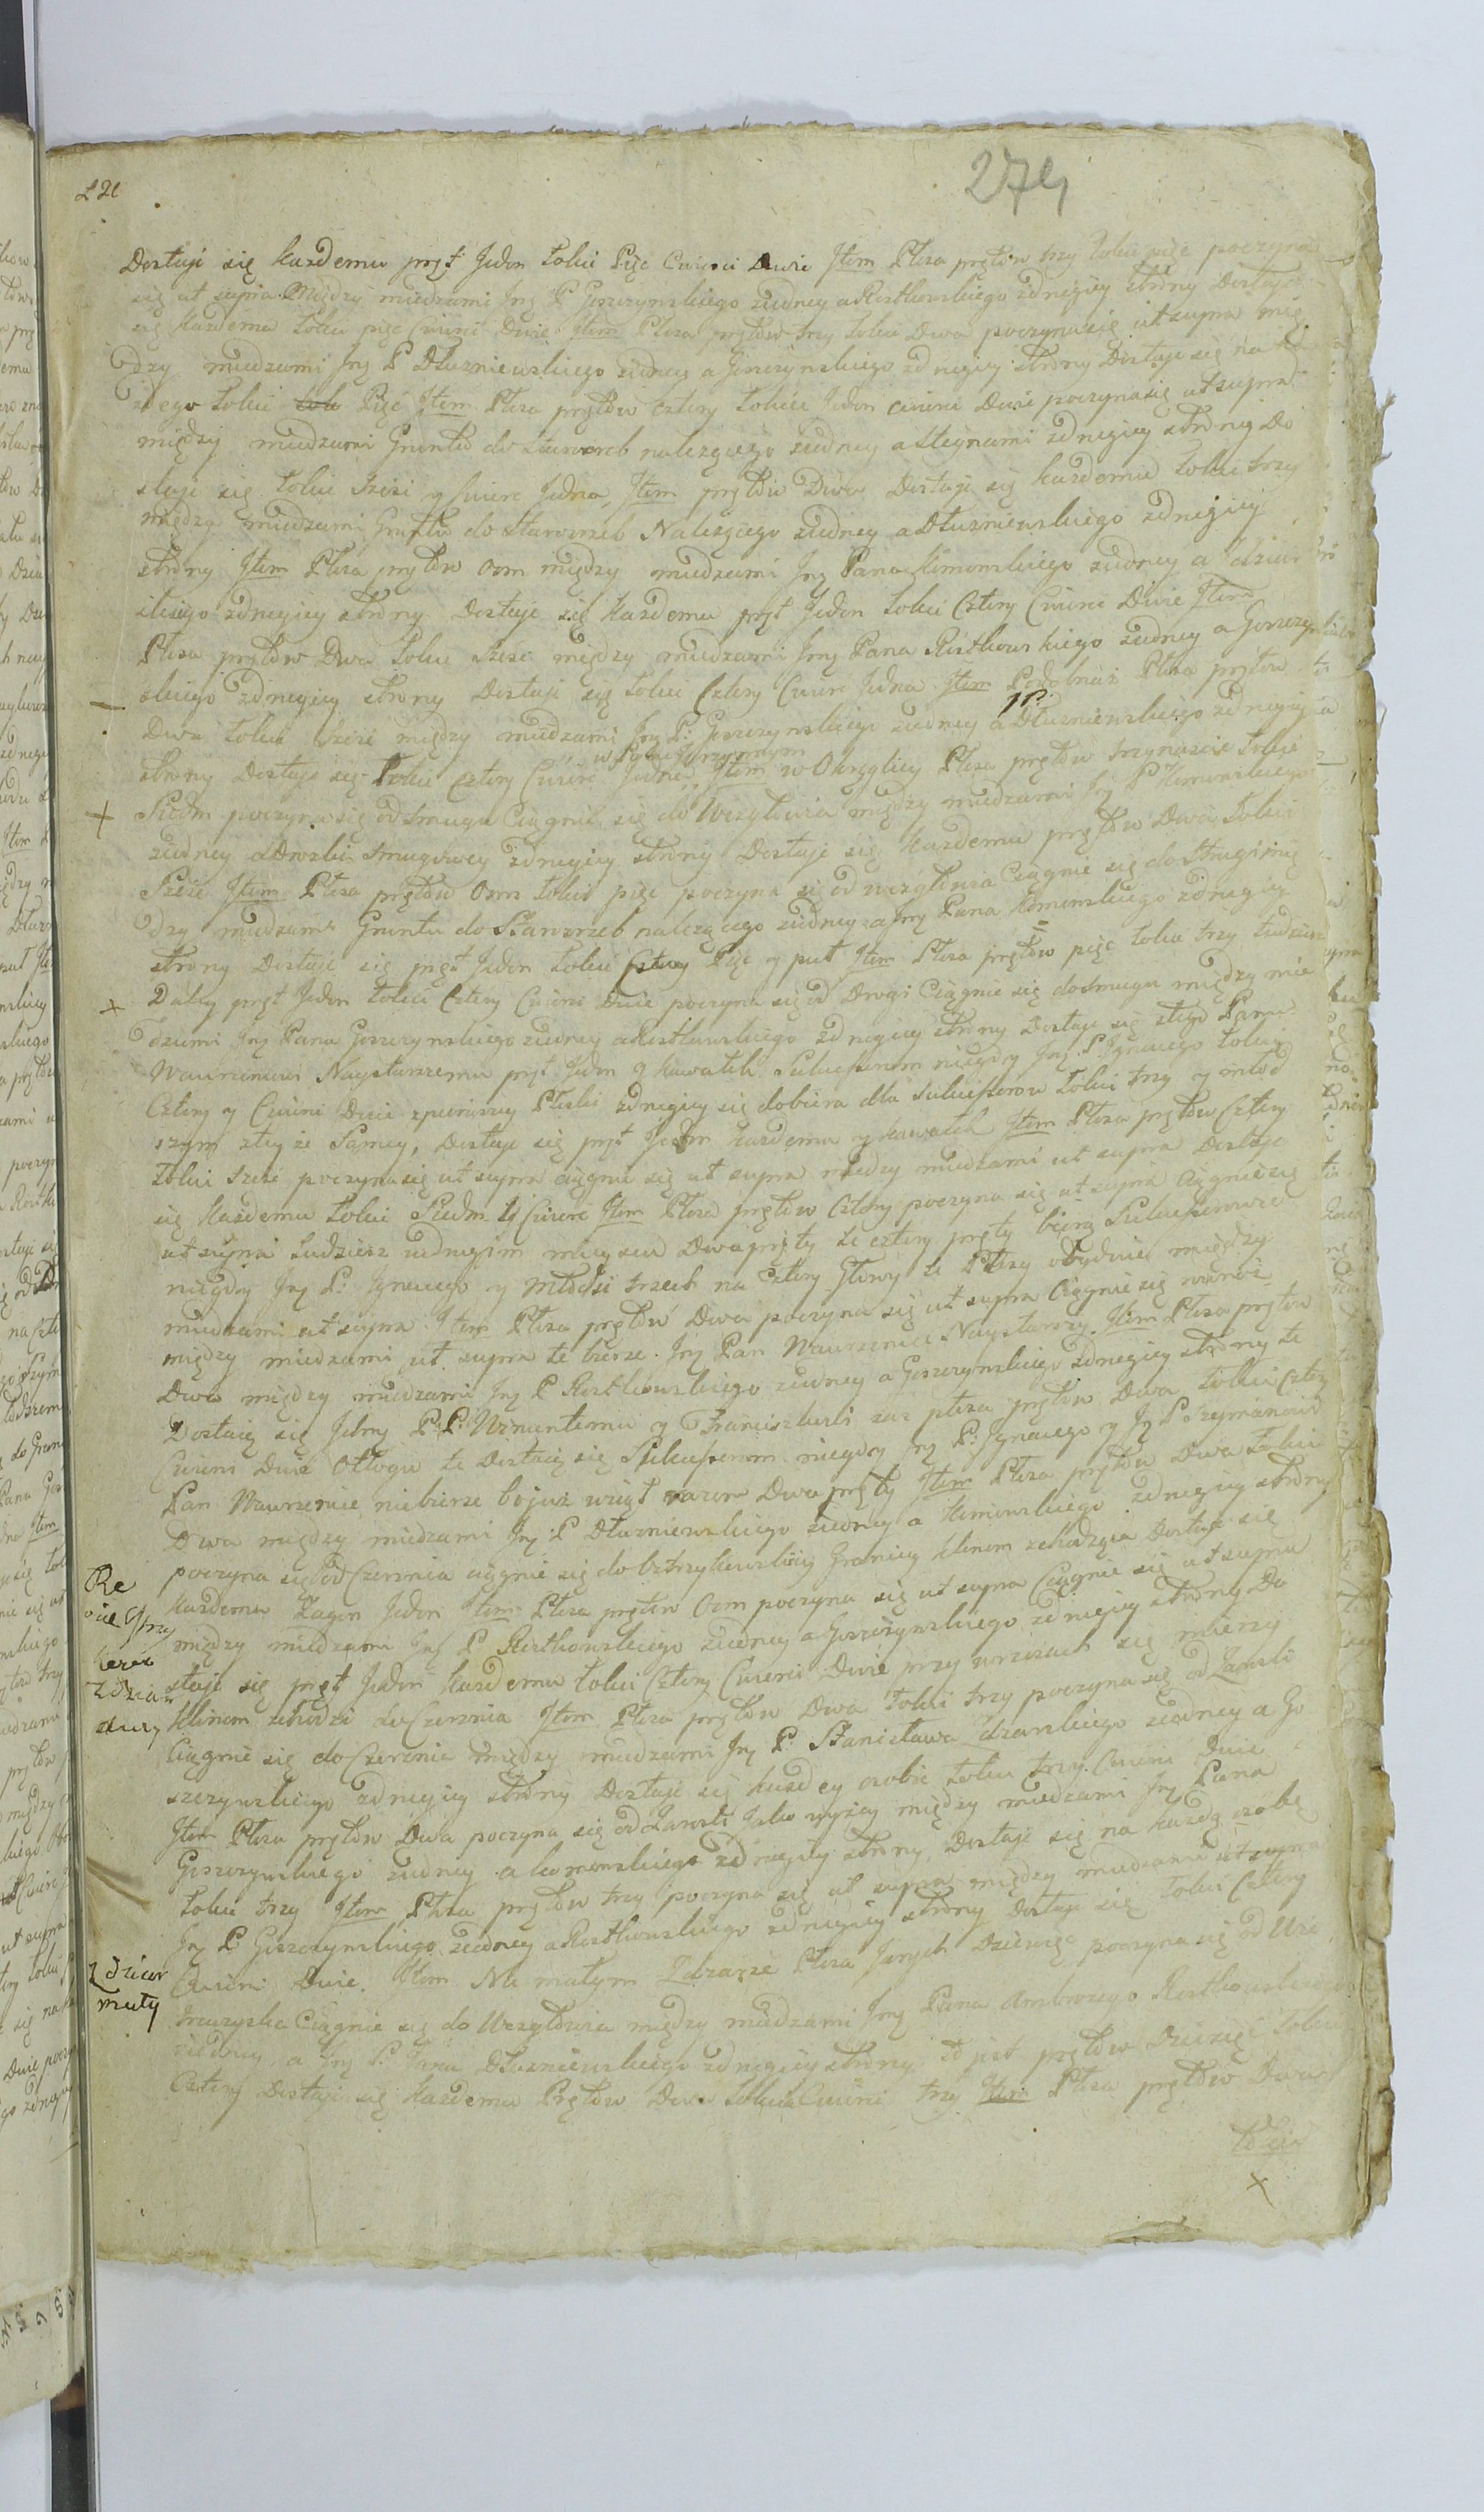 274
Dostaje się każdemu pręt Jeden łokci Pięć Cwierci Dwie Item Płosa prętów trzy łokci pięć poczyna
się ut supra Między miedzami Jmć P Goszczynskiego ziedney a Rostkowskiego zdrugiey strony Dostaje
się każdemu łokci pięć Cwierci Dwie Item Płosa prętów trzy łokci Dwa poczyna się ut supra mię
dzy miedzami Jmć P Dłuzniewskiego ziedney a Goszczynskiego zdrugiey strony Dostaje się na
zdego łokci Pięć Item Płosa prętów cztery łokcie Jeden cwierci Dwie poczyna się ut supra
między miedzami Gruntu do Starozreb nalezącego ziedney a Steynami zdrugiey strony Do
staje się łokci Sześć y Cwierc Jedna, Item prętów Dwa Dostaje się każdemu łokci trzy
między miedzami Gruntu do Starozreb Nalezącego ziedney a Dłuzniewskiego zdrugiey
strony Item Płosa prętów osm między miedzami Jmć Pana Komorskiego ziedney a
skiego zdrugiey strony Dostaje się każdemu pręt Jeden łokci Cztery Cwierci Dwie Item
Płosa prętów Dwa łokci Sześć między miedzami Jmć Pana Rostkowskiego ziedney a Goszczyn
skiego zdrugiey strony Dostaje się łokci Cztery Cwierc Jedna Item Podobnaż Płosa prętów
Dwa łokci Sześć między miedzami Jmć P: Goszczynskiego ziedney a JP. Dłuzniewskiego zdrugiey
strony Dostaje się łokci cztery Cwierć Jedna, Item w Okrąglicy Płosa prętów trzynascie łokcie
Siedm poczyna się od Smugu Ciągnie się do Wezgłowia między miedzami Jmć P Komorskiego
ziedney a Drozki Smugowey zdrugiey strony Dostaje się każdemu prętów Dwa łokci
Sześć Item Płosa prętów Osm łokci pięć poczyna się od wezgłowia Ciągnie się do Strugi mię
dzy miedzami Gruntu do Starozreb nalezącego ziedney a Jmć Pana Komorskiego zdrugiey
strony Dostaje się pręt Jeden łokci Pięć y puł Item Płosa prętów pięć łokci trzy tudziesz
Daley pręt Jeden łokci Cztery Cwierci Dwie poczyna się od Drogi Ciągnie się do Smugu między mie
dzami Jmć Pana Goszczynskiego ziedney a Rostkowskiego zdrugiey strony Dostaje się ztego Panu
Wawrzencowi Naystarszemu pręt Jeden y kawałek Sukcesorom niegdy Jmć P Ignacego łokci
Cztery y Cwierci Dwie zpierwszy Płoski zdrugiey się dobiera dla Sukcesorow łokci trzy y młod
szym ztey że Samey, Dostaje się pręt Jeden każdemu y kawałek Item Płosa prętów Cztery
łokci Sześć poczyna się ut supra ciągnie się ut supra między miedzami ut supra Dostaje
się każdemu łokci Siedm y Cwierc Item Płosa prętów Cztery poczyna się ut supra Ciągnie się
ut supra tudziesz wdrugim mieyscu Dwa pręty te cztery pręty bierą Sukcesorowie
niegdy Jmć P: Ignacego y Młodsi trzech na cztery Głowy te Płosy obydwie między
miedzami ut supra Item Płosa prętów Dwa poczyna się ut supra Ciągnie się
między miedzami ut supra te bierze Jmć Pan Wawrzeniec Naystarszy. Item Płosa prętów
Dwa między miedzami Jmć P Rostkowskiego ziedney a Goszczynskiego zdrugiey strony te
Dostaią się Ichmć P:P: Wznantemu y Franciszkowi zaś płosa prętów Dwa łokci cztery
Cwierci Dwie Odłogu te Dostaią się Sukcesorom niegdy Jmć P: Ignacego y Jmć P Szymanowi
Pan Wawrzeniec niebierze bo już wziął razem Dwa pręty Item Płosa prętów Dwa łokci
Dwa między miedzami Jmć P Dłuzniewskiego ziedney a Komorskiego zdrugiey strony
poczyna się od Czersnia ciągnie się do Granicy klinem zchodząca Dostaje się
każdemu Zagon Jeden Item Płosa prętów Osm poczyna się ut supra Ciągnie się ut supra
między miedzami Jmć P Rostkowskiego ziedney a Goszczynskiego zdrugiey strony Do
staje się pręt Jeden każdemu łokci Cztery Cwierci Dwie przy wrzosach się mierzy
klinem schodzi do Czersnia Item Płosa prętów Dwa łokci trzy poczyna się od Zarosli
Ciągnie się do Czersnia między miedzami Jmć P: Stanisława Zdzarskiego ziedney a Go
szczynskiego zdrugiey strony Dostaje się każdey osobie łokci trzy Cwierci Dwie
Item Płosa prętów Dwa poczyna się od Zarosli Jako wyżey między miedzami Jmć Pana
Goszczynskiego ziedney a Komorskiego zdrugiey strony, Dostaje się na każdą osobę
łokci trzy Item Płosa prętów trzy poczyna się ut supra między miedzami ut supra
Jmć P Goszczynskiego ziedney a Rostkowskiego zdrugiey strony Dostaje się łokci Cztery
Cwierci Dwie. Item Na małym Zdzarze Płosa Jarych Dziewięć poczyna się od
Ciągnie się do Wezgłowia między miedzami Jmć Pana Ambrozego Rostkowskiego
ziedney, a Jmć P: Jana Dłuzniewskiego zdrugiey strony to jest prętów Dziesięć łokci
Cztery Dostaje się każdemu Prętów Dwa łokcia Cwierci trzy Item Płosa prętów Dwa
łokcia
Zdziar
mały